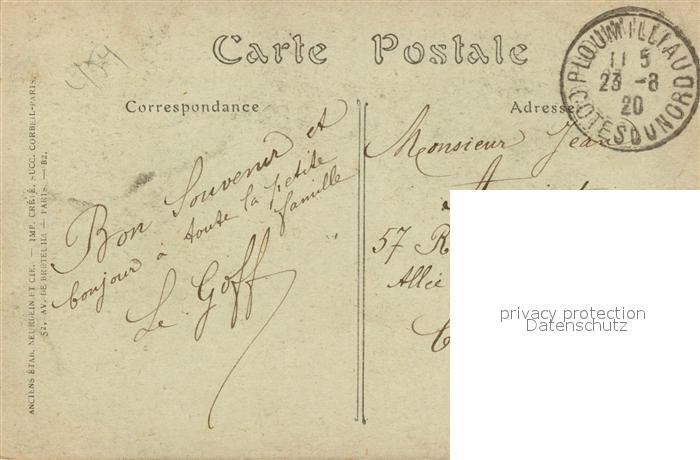 4/34
Carte Postale
PLOUMILLIAU
11 5
23 - 8
20
COTES DU NORD
Correspondance
Adresse
Bon Souvenir et
bonjour à toute la petite
famille
Le Goff
Monsieur Jean
57 R
Allée
ANCIENS ÉTAB. NEURDEIN ET CIE. — IMP. CRÉTÉ, SUCC. CORBEIL-PARIS.
52, AV. DE BRETEUIL — PARIS. — B2.
privacy protection
Datenschutz